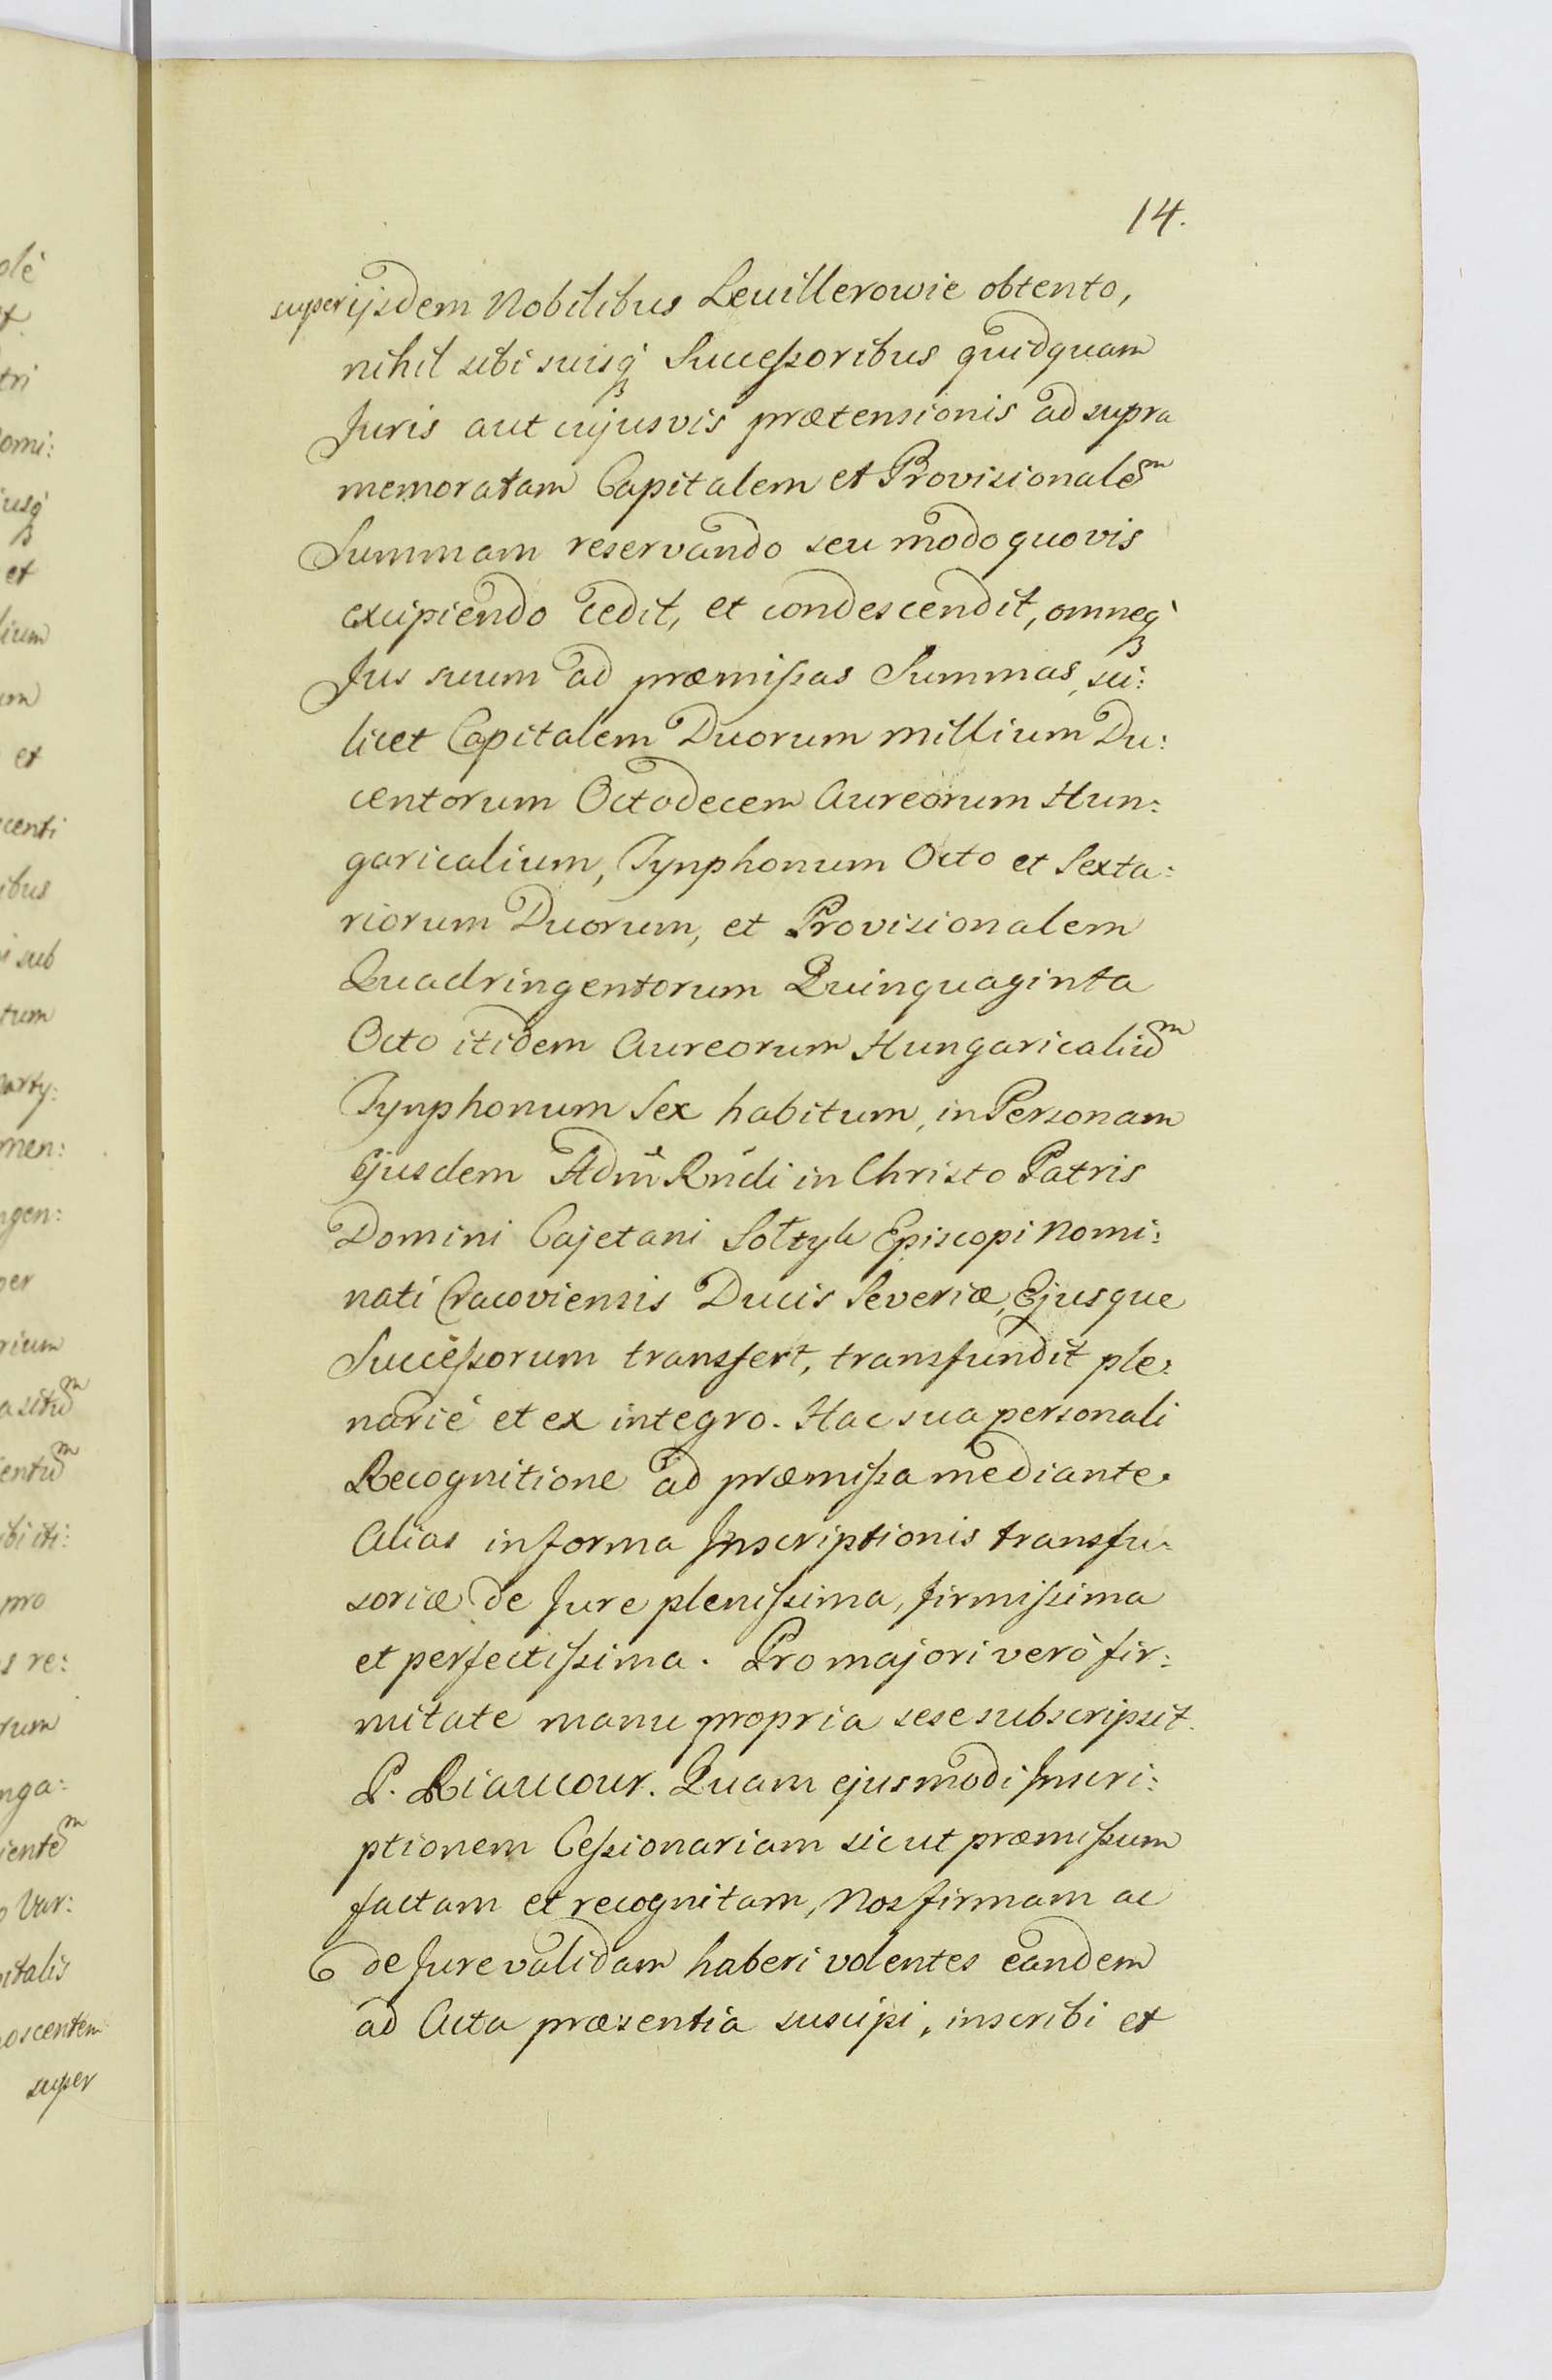 14.
super ijsdem Nobilibus Leuillerowie obtento,
nihil sibi suisq́ Successoribus quidquam
Juris aut cujusvis prætensionis ad supra
memoratam Capitalem et Provisionalēm
Summam reservando seu modo quovis
excipiendo cedit, et condescendit, omneq́
Jus suum ad præmissas Summas, sci:
licet Capitalem Duorum millium Du:
centorum Octodecem Aureorum Hun:
garicalium, Tynphonum Octo et Sexta:
riorum Duorum, et Provisionalem
Quadringentorum Quinquaginta
Octo itidem Aureorum Hungaricaliūm
Tynphonum Sex habitum, in Personam
Ejusdem Adm̃ Rńdi in Christo Patris
Domini Cajetani Sołtyk Episcopi Nomi:
nati Cracoviensis Ducis Severiæ, Ejusque
Successorum transfert, transfundit ple:
nariè et ex integro. Hac sua personali
Recognitione ad præmissa mediante.
Alias in forma Inscriptionis transfu:
soriæ de Jure plenissima, firmissima
et perfectissima. Pro majori verò fir:
mitate manu propria sese subscripsit.
P. Riaucour. Quam ejusmodi Inscri:
ptionem Cessionariam sicut præmissum
factam et recognitam, Nos firmam ac
de Jure validam haberi volentes eandem
ad Acta præsentia suscipi, inscribi et
olè
tri
omi:
iusq́
et
lium
um
et
centi
ibus
i sub
tum
arty:
men:
ngen:
per
rium
asitūm
entūm
ibi iti:
pro
s re:
rum
nga:
ientēm
o Var:
pitalis
noscentem
super